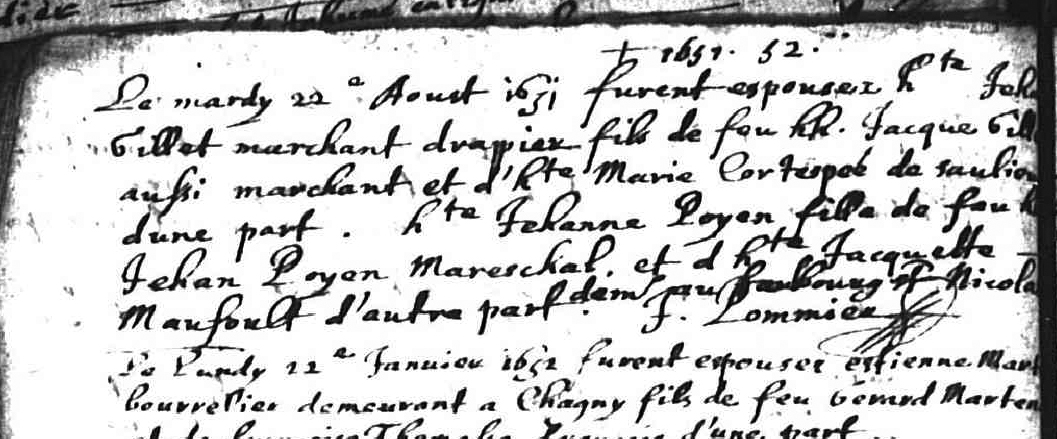 † 1651. 52.
Le mardy 22e Aoust 1651 furent espousez hte Jeh
Gillet marchant drappier fils de feu hh. Jacque Gill
aussi marchant et d'hte Marie Cortespée de saulieu
dune part. hte Jehanne Poyen fille de feu h
Jehan Poyen Mareschal. et d hte Jacquette
Maufoult d'autre part. demt au faubourg St Nicola
J. Lommieu
Le Lundy 22e Januier 1652 furent espousez estienne Mart
bourrelier demeurant a Chagny fils de feu Gerard Marten
et de d'une part